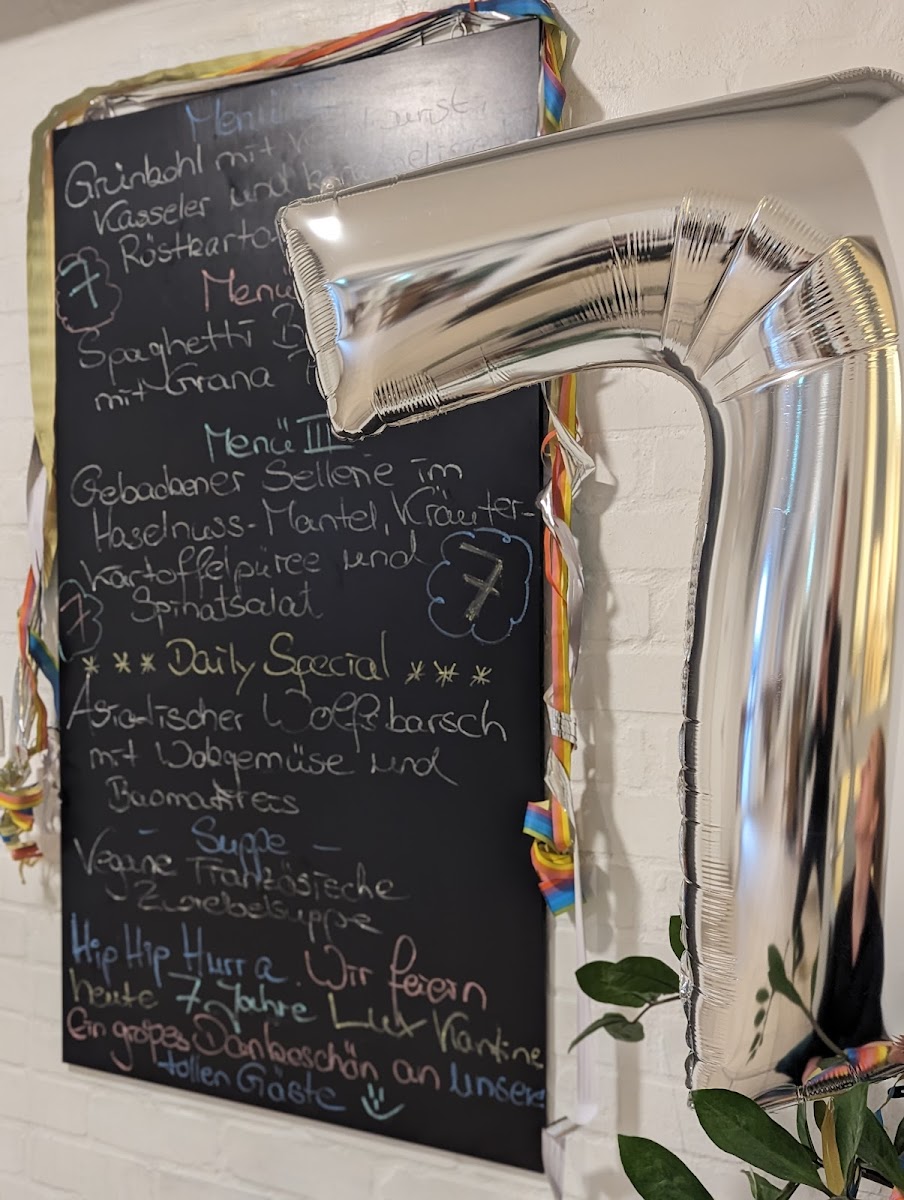 Menü I
Grünkohl mit
Kasseler und
Röstkarto
7
Menü
Spaghetti B
mit Grana
Menü III
Gebackener Sellerie im
Haselnuss-Mantel, Kräuter-
Kartoffelpüree und
7
Spinatsalat
7
*** Daily Special ***
Asiatischer Wolfsbarsch
mit Wokgemüse und
Basmatireis
- Suppe -
Vegane Französische
Zwiebelsuppe
Hip Hip Hurra. Wir feiern
heute 7 Jahre Lux Kantine
Ein großes Dankeschön an unsere
tollen Gäste
7